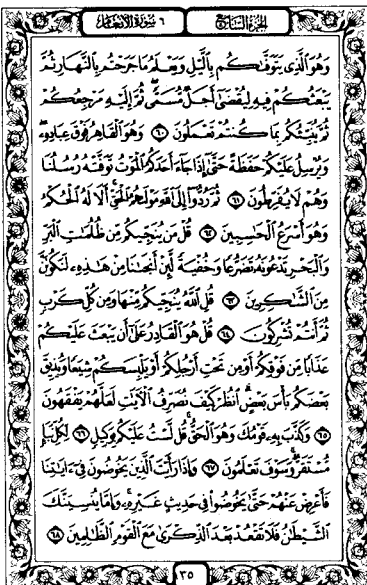 الجزء السابع
٦ سورة الأنعام
وَهُوَ ٱلَّذِى يَتَوَفَّىٰكُم بِٱلَّيْلِ وَيَعْلَمُ مَا جَرَحْتُم بِٱلنَّهَارِ ثُمَّ
يَبْعَثُكُمْ فِيهِ لِيُقْضَىٰٓ أَجَلٌ مُّسَمًّى ۖ ثُمَّ إِلَيْهِ مَرْجِعُكُمْ
ثُمَّ يُنَبِّئُكُم بِمَا كُنتُمْ تَعْمَلُونَ ٦٠ وَهُوَ ٱلْقَاهِرُ فَوْقَ عِبَادِهِۦ ۖ
وَيُرْسِلُ عَلَيْكُمْ حَفَظَةً حَتَّىٰٓ إِذَا جَآءَ أَحَدَكُمُ ٱلْمَوْتُ تَوَفَّتْهُ رُسُلُنَا
وَهُمْ لَا يُفَرِّطُونَ ٦١ ثُمَّ رُدُّوٓا۟ إِلَى ٱللَّهِ مَوْلَىٰهُمُ ٱلْحَقِّ ۚ أَلَا لَهُ ٱلْحُكْمُ
وَهُوَ أَسْرَعُ ٱلْحَـٰسِبِينَ ٦٢ قُلْ مَن يُنَجِّيكُم مِّن ظُلُمَـٰتِ ٱلْبَرِّ
وَٱلْبَحْرِ تَدْعُونَهُۥ تَضَرُّعًا وَخُفْيَةً لَّئِنْ أَنجَىٰنَا مِنْ هَـٰذِهِۦ لَنَكُونَنَّ
مِنَ ٱلشَّـٰكِرِينَ ٦٣ قُلِ ٱللَّهُ يُنَجِّيكُم مِّنْهَا وَمِن كُلِّ كَرْبٍ
ثُمَّ أَنتُمْ تُشْرِكُونَ ٦٤ قُلْ هُوَ ٱلْقَادِرُ عَلَىٰٓ أَن يَبْعَثَ عَلَيْكُمْ
عَذَابًا مِّن فَوْقِكُمْ أَوْ مِن تَحْتِ أَرْجُلِكُمْ أَوْ يَلْبِسَكُمْ شِيَعًا وَيُذِيقَ
بَعْضَكُم بَأْسَ بَعْضٍ ۗ ٱنظُرْ كَيْفَ نُصَرِّفُ ٱلْـَٔايَـٰتِ لَعَلَّهُمْ يَفْقَهُونَ
٦٥ وَكَذَّبَ بِهِۦ قَوْمُكَ وَهُوَ ٱلْحَقُّ ۚ قُل لَّسْتُ عَلَيْكُم بِوَكِيلٍ ٦٦ لِّكُلِّ نَبَإٍ
مُّسْتَقَرٌّ ۚ وَسَوْفَ تَعْلَمُونَ ٦٧ وَإِذَا رَأَيْتَ ٱلَّذِينَ يَخُوضُونَ فِىٓ ءَايَـٰتِنَا
فَأَعْرِضْ عَنْهُمْ حَتَّىٰ يَخُوضُوا۟ فِى حَدِيثٍ غَيْرِهِۦ ۚ وَإِمَّا يُنسِيَنَّكَ
ٱلشَّيْطَـٰنُ فَلَا تَقْعُدْ بَعْدَ ٱلذِّكْرَىٰ مَعَ ٱلْقَوْمِ ٱلظَّـٰلِمِينَ ٦٨
١٣٥